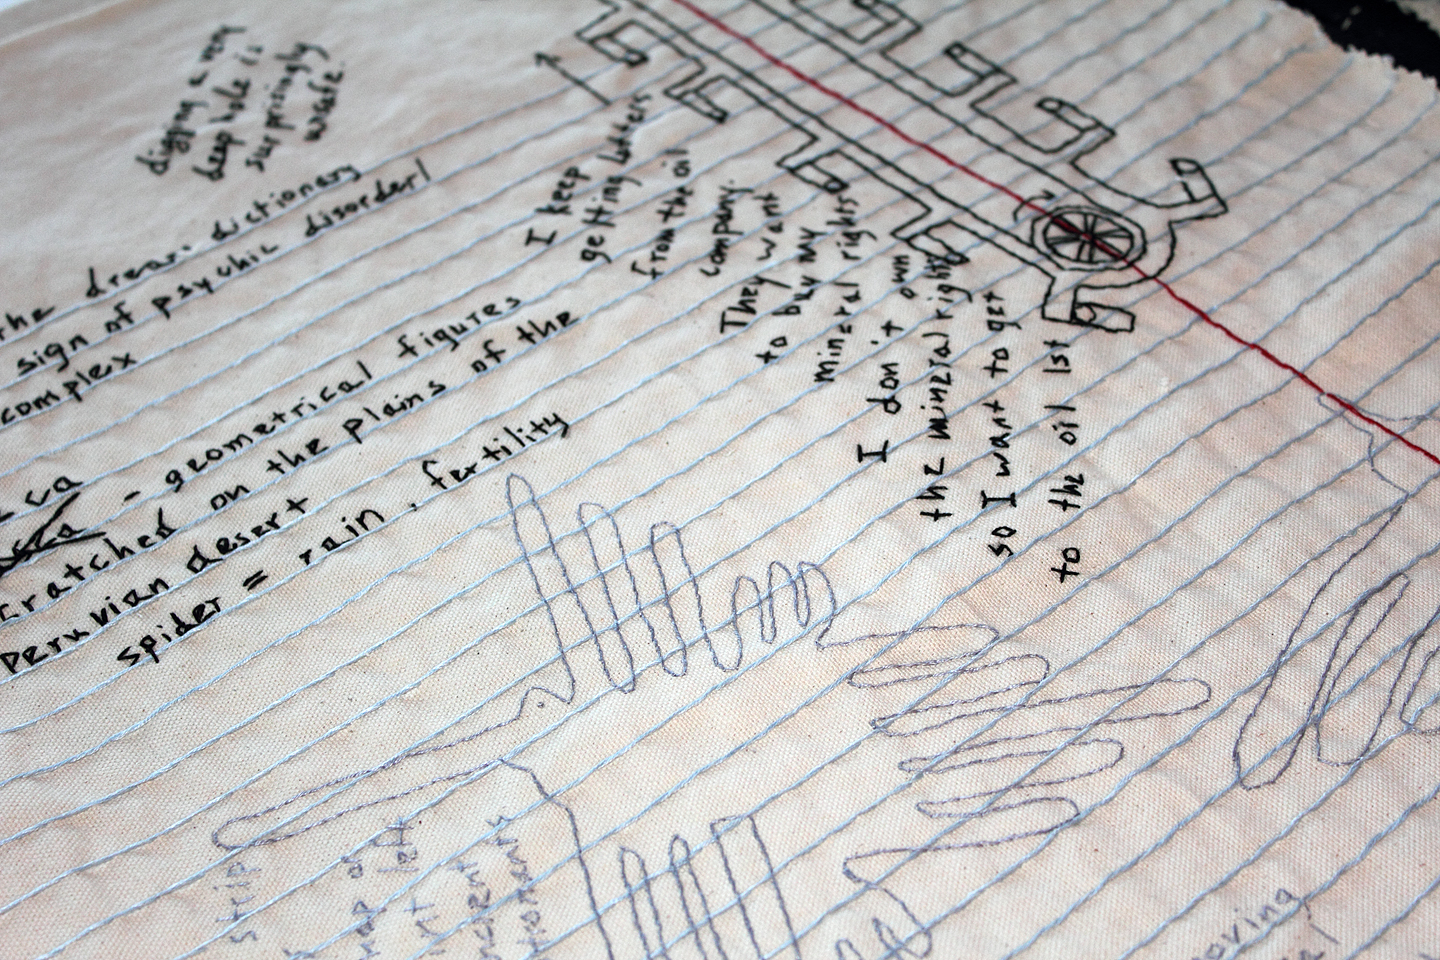 digging a very
deep hole is
surprisingly
unsafe.
the dream dictionary
sign of psychic disorder/
complex
- geometrical figures
scratched on the plains of the
peruvian desert
spider = rain, fertility
I keep
getting letters
from the oil
company.
They want
to buy my
mineral rights
I don't own
the mineral rights
so I want to get
to the oil 1st
strip
left